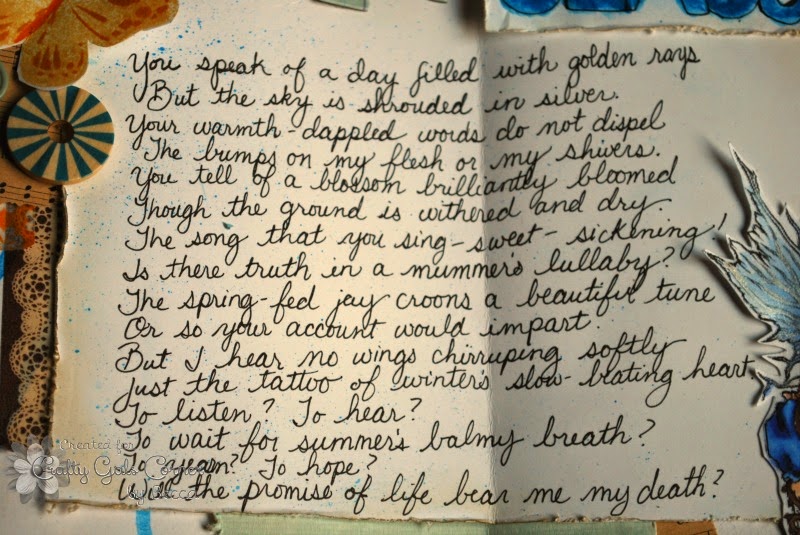 You speak of a day filled with golden rays
But the sky is shrouded in silver.
Your warmth-dappled words do not dispel
The bumps on my flesh or my shivers.
You tell of a blossom brilliantly bloomed
Though the ground is withered and dry.
The song that you sing-sweet-sickening!
Is there truth in a mummer's lullaby?
The spring-fed jay croons a beautiful tune
Or so your account would impart.
But I hear no wings chirruping softly
Just the tattoo of winter's slow-beating heart.
To listen? To hear?
To wait for summer's balmy breath?
To yearn? To hope?
Will the promise of life bear me my death?
Created for
Crafty Gals Corner
by